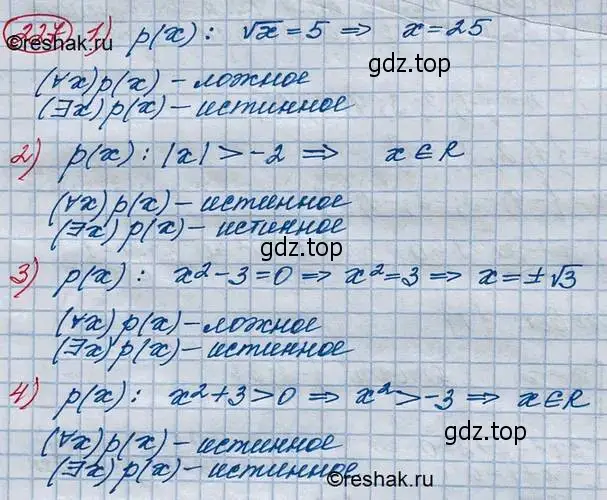 227 1) p(x): √x = 5 ⇒ x = 25
©reshak.ru
(∀x)p(x) – ложное
(∃x)p(x) – истинное
2) p(x): |x| > -2 ⇒ x ∈ R
(∀x)p(x) – истинное
(∃x)p(x) – истинное
gdz.top
3) p(x): x² - 3 = 0 ⇒ x² = 3 ⇒ x = ±√3
(∀x)p(x) – ложное
(∃x)p(x) – истинное
4) p(x): x² + 3 > 0 ⇒ x² > -3 ⇒ x ∈ R
gdz.top
(∀x)p(x) – истинное
(∃x)p(x) – истинное
©reshak.ru